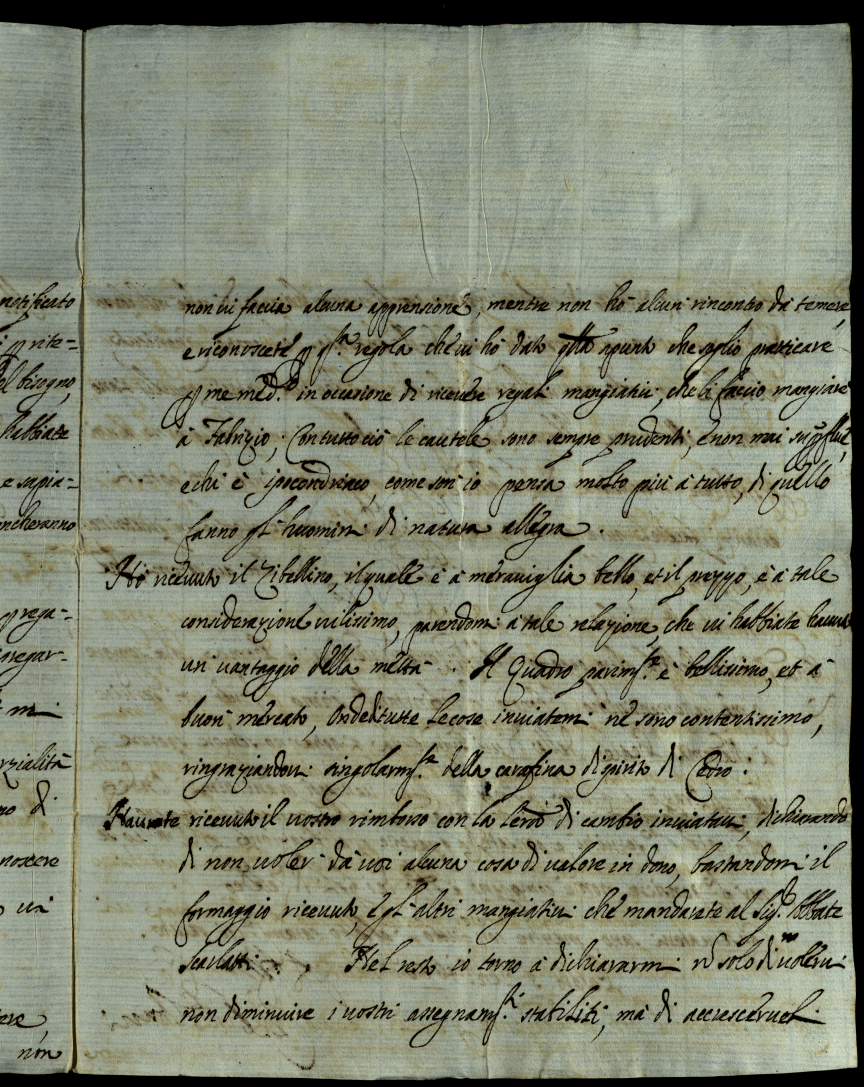 notificato
rite=
al bisogno,
habbiate
e sapia=
ncheranno
prega=
pregar-
mi
rzialità
no di
noscere
vi
ere,
non
non vi faccia alcuna apprensione, mentre non hò alcun rincontro da temere,
e riconoscete p q.sta regola che vi hò dato appunto che soglio pratticare
p me med.o in occasione di ricevere regali mangiativi, che li faccio mangiare
à Fabrizio; Con tutto ciò le cautele sono sempre prudenti, e non mai superflue,
e chi è ipocondriaco, come son io pensa molto più à tutto, di quello
fanno gl'huomini di natura allegra.
Hò ricevuto il Zibellino, il quale è à meraviglia bello, et il prezzo, è à tale
considerazione vilissimo, parendomi à tale relazione, che vi habbiate havuto
un vantaggio della metà. Il Quadro parim.te è bellissimo, et à
buon mercato, Onde di tutte le cose inviatemi ne sono contentissimo,
ringraziandovi singolarm.te della carafina di spirito di Cedro:
Havrete ricevuto il vostro rimborso con la lera di cambio inviatavi, dichiarando
di non voler da voi alcuna cosa di valore in dono, bastandomi il
formaggio ricevuto, e gl'altri mangiativi che mandarate al Sig.r Abbate
Scarlatti. Nel resto io torno à dichiararmi nò solo di n volervi
non diminuire i vostri assegnam.ti stabiliti, mà di accrescerveli